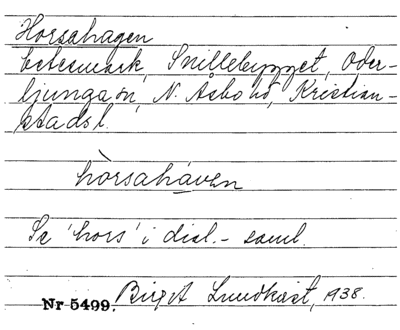 Horsahagen
betesmark, Snillebygget, Oder-
ljunga sn, N. Åsbo hd, Kristian-
stads l.
hòrsahàven
Se 'hors' i dial.-saml.
Nr 5499. Birgit Lundkvist, 1938.